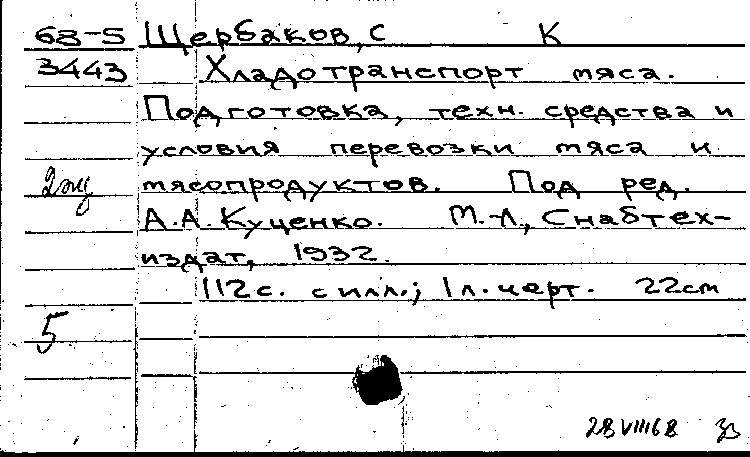 68-5 Щербаков, С К
3443 Хладотранспорт мяса.
Подготовка, техн. средства и
условия перевозки мяса и
2 экз мясопродуктов. Под ред.
А.А. Куценко. М.-Л., Снабтех-
издат, 1932.
112 с. с илл.; 1 л. черт. 22 см
5
28 VIII 68